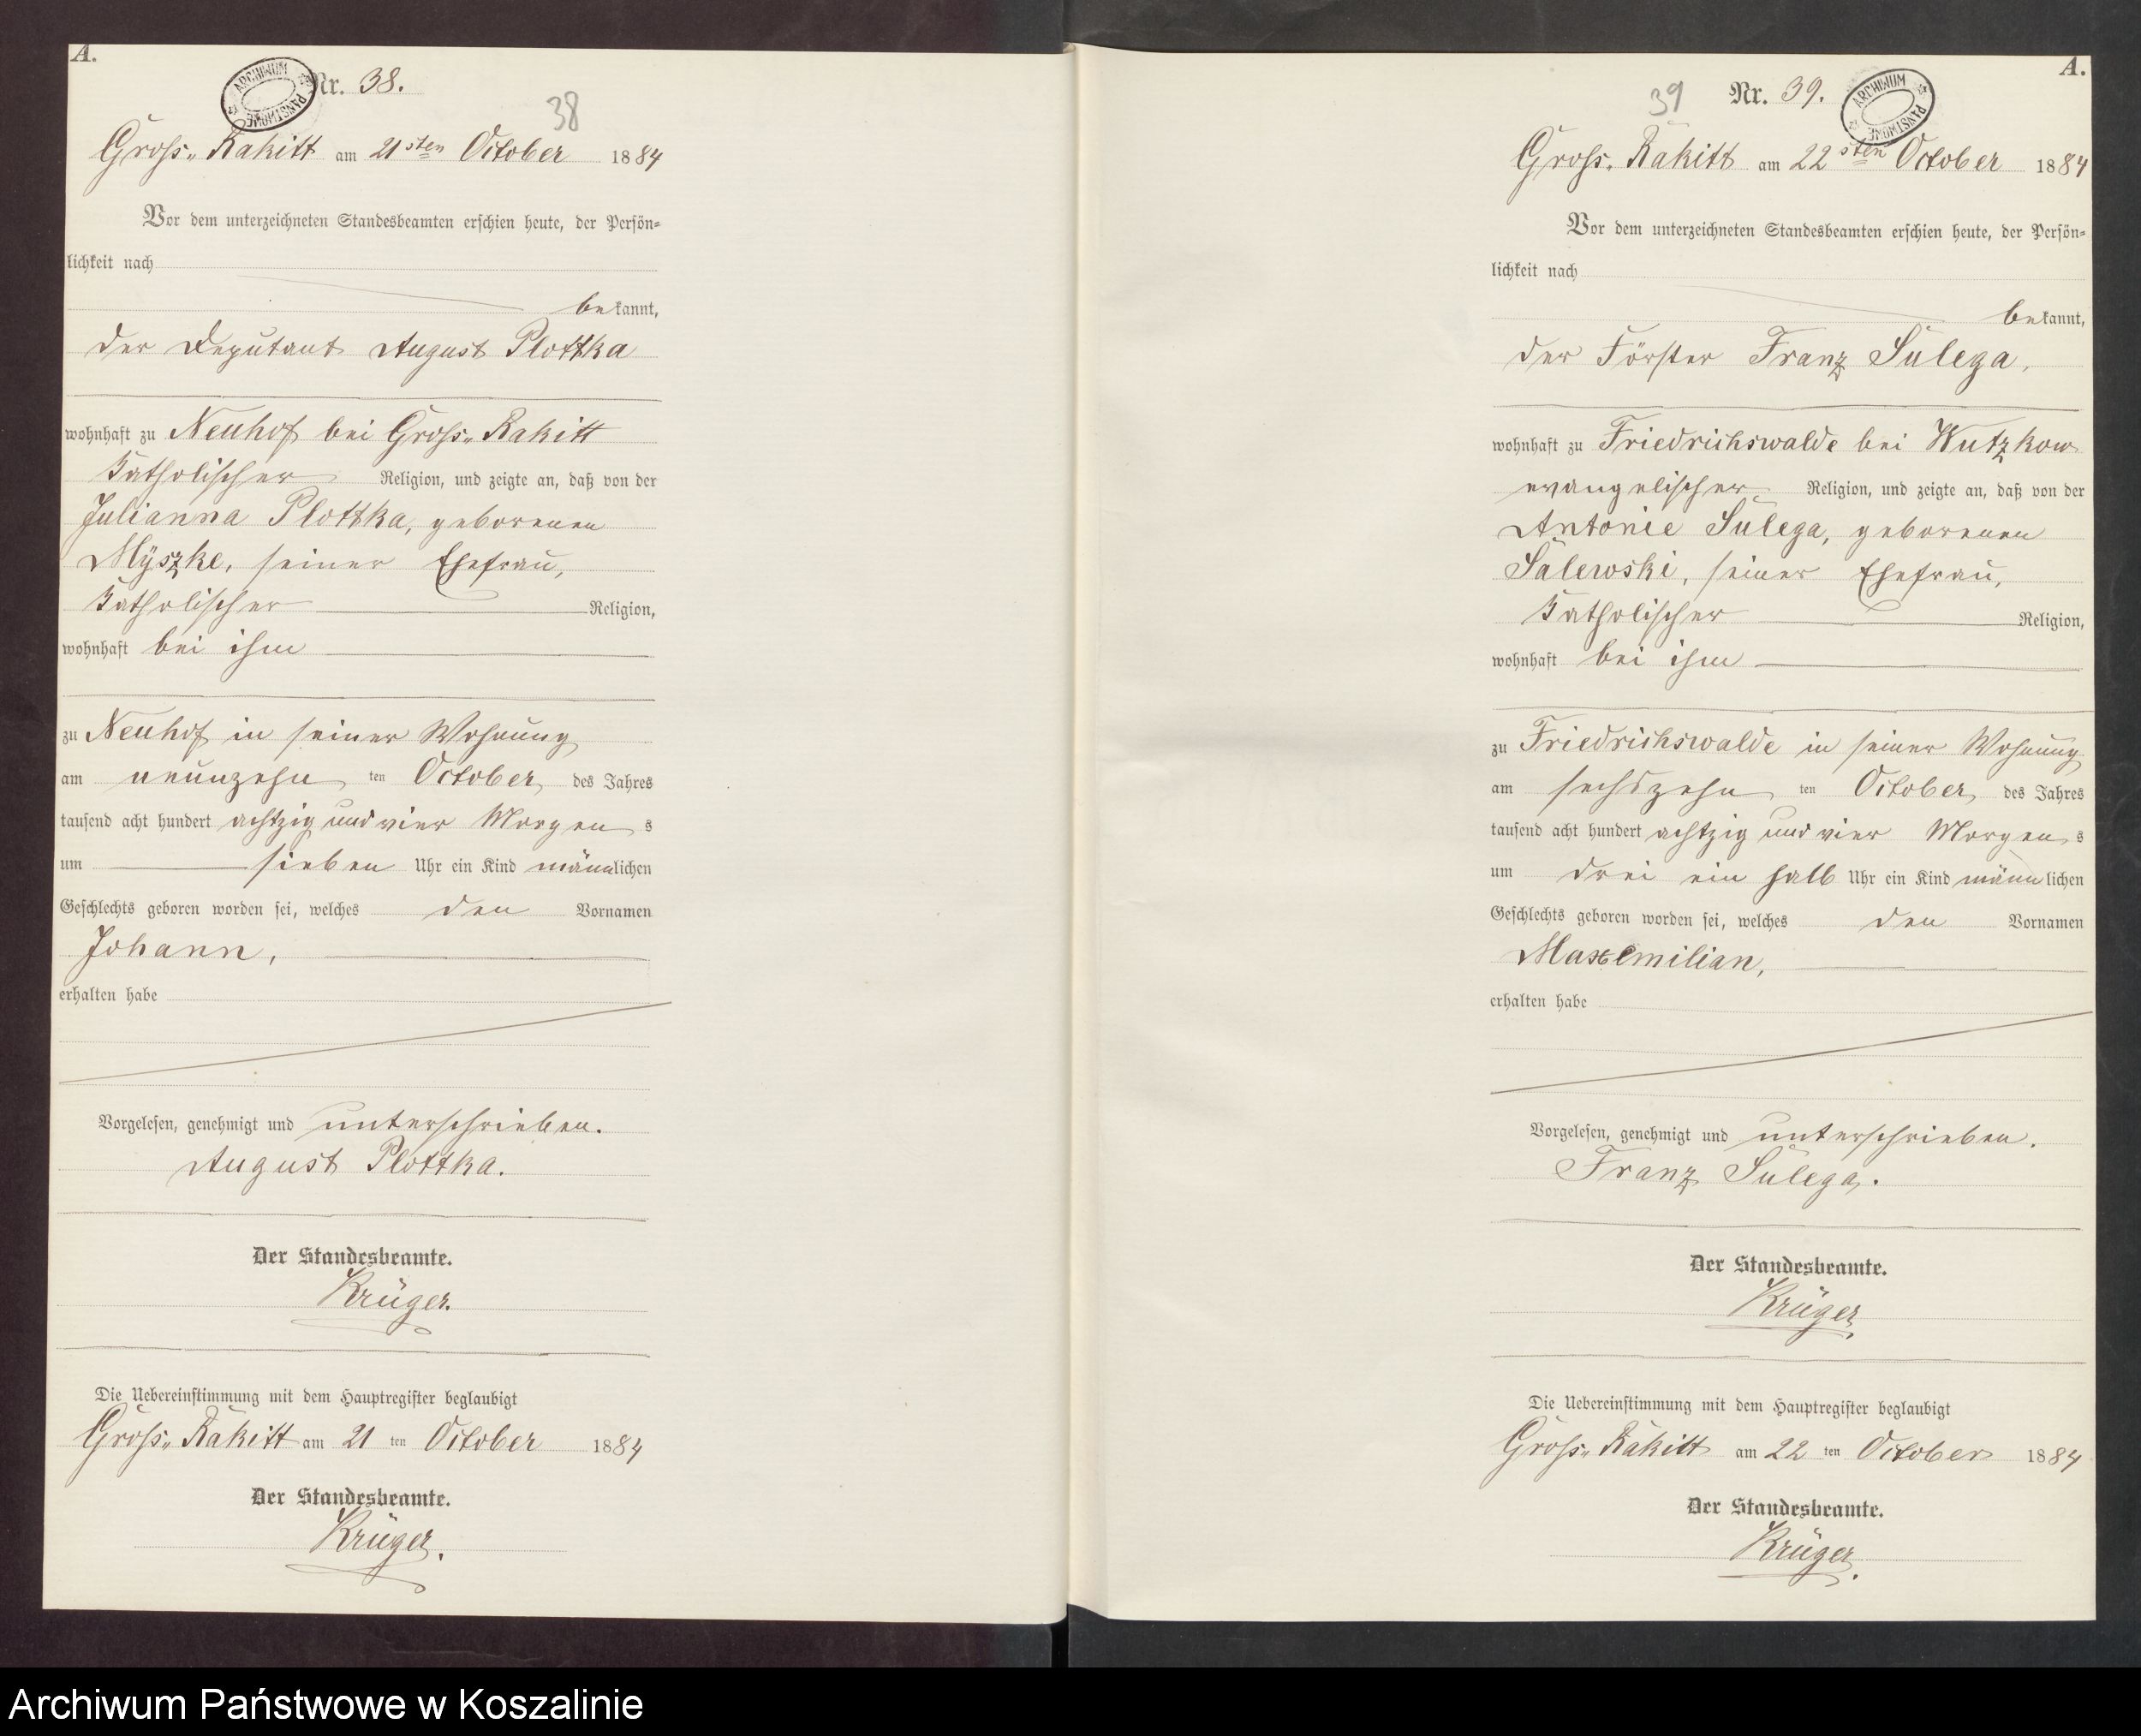 A.
ARCHIWUM PAŃSTWOWE
Nr. 38.
38
Gross„ Rakitt am 21sten October 1884
Vor dem unterzeichneten Standesbeamten erschien heute, der Persön=
lichkeit nach
bekannt,
der Deputant August Plottka
wohnhaft zu Neuhof bei Gross„ Rakitt
katholischer Religion, und zeigte an, daß von der
Julianna Plottka, geborenen
Myszke, seiner Ehefrau,
katholischer Religion,
wohnhaft bei ihm
zu Neuhof in seiner Wohnung
am neunzehn ten October des Jahres
tausend acht hundert achtzig und vier Morgens
um sieben Uhr ein Kind männlichen
Geschlechts geboren worden sei, welches den Vornamen
Johann,
erhalten habe
Vorgelesen, genehmigt und unterschrieben.
August Plottka.
Der Standesbeamte.
Krüger.
Die Uebereinstimmung mit dem Hauptregister beglaubigt
Gross„ Rakitt am 21 ten October 1884
Der Standesbeamte.
Krüger.
A.
39
Nr. 39.
ARCHIWUM PAŃSTWOWE
Gross„ Rakitt am 22sten October 1884
Vor dem unterzeichneten Standesbeamten erschien heute, der Persön=
lichkeit nach
bekannt,
der Förster Franz Sulega,
wohnhaft zu Friedrichswalde bei Wutzkow
evangelischer Religion, und zeigte an, daß von der
Antonie Sulega, geborenen
Salewski, seiner Ehefrau,
katholischer Religion,
wohnhaft bei ihm
zu Friedrichswalde in seiner Wohnung
am sechszehn ten October des Jahres
tausend acht hundert achtzig und vier Morgens
um drei ein halb Uhr ein Kind männlichen
Geschlechts geboren worden sei, welches den Vornamen
Maxemilian,
erhalten habe
Vorgelesen, genehmigt und unterschrieben.
Franz Sulega.
Der Standesbeamte.
Krüger.
Die Uebereinstimmung mit dem Hauptregister beglaubigt
Gross„ Rakitt am 22 ten October 1884
Der Standesbeamte.
Krüger.
Archiwum Państwowe w Koszalinie